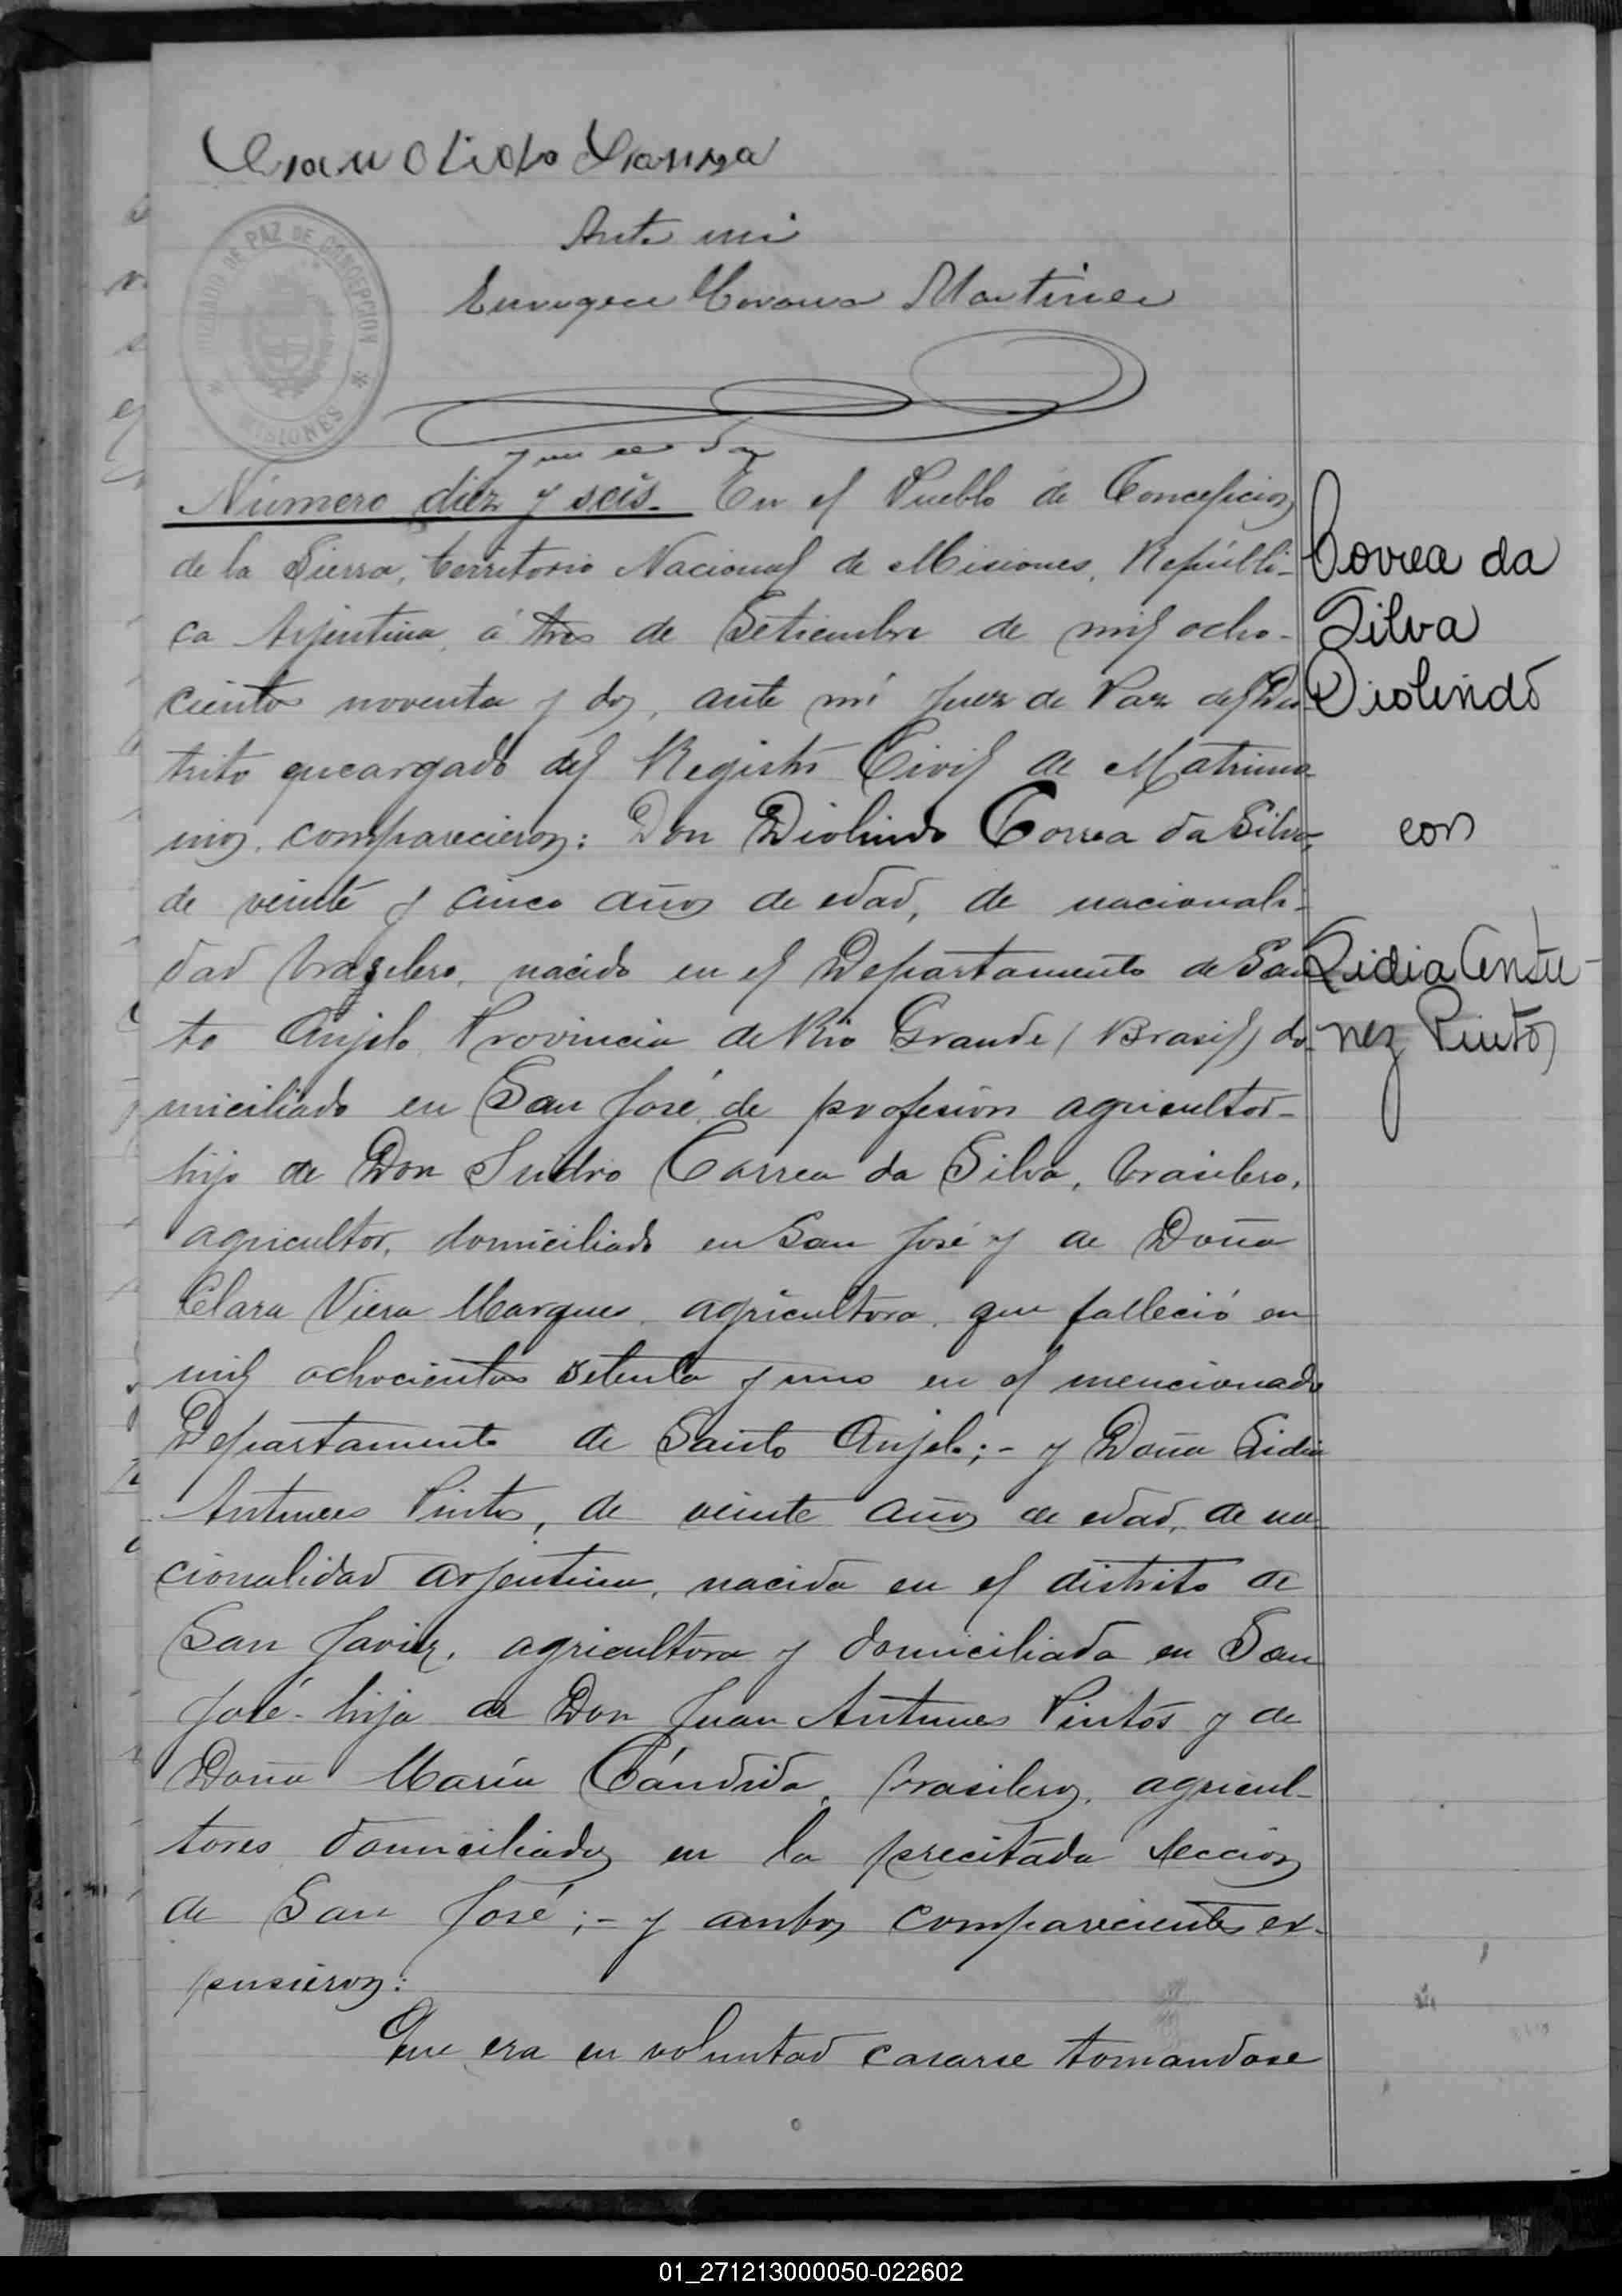 Ante mi
Martinez
JUZGADO DE PAZ DE CONCEPCION
* MISIONES *
Número diez y seis. En el Pueblo de Concepcion
de la Sierra, territorio Nacional de Misiones, Repúbli-
ca Arjentina, á tres de Setiembre de mil ocho-
cientos noventa y dos, ante mí Juez de Paz del Dis-
trito encargado del Registro Civil de Matrimo
nios, comparecieron: Don Diolindo Correa da Silva,
de veinte y cinco años de edad, de nacionali-
dad brazilero, nacido en el Departamento de San
to Anjelo, Provincia de Rio Grande (Brasil) do-
miciliado en San José, de profesion agricultor-
hijo de Don Correa da Silva, brasilero,
agricultor, domiciliado en San José y de Doña
Clara Viera Marques, agricultora, que falleció en
mil ochocientos setenta y uno en el mencionado
Departamento de Santo Anjelo;- y Doña Lidia
Antunes Pintos, de veinte años de edad, de na-
cionalidad arjentina, nacida en el distrito de
San Javier, agricultora y domiciliada en San
José- hija de Don Juan Antunes Pintos y de
Doña María Cándida, brasileros, agricul-
tores domiciliados en la precitada seccion
de San José;- y ambos comparecientes ex-
pusieron:
Que era su voluntad casarse tomandose
Correa da
Silva
Diolindo
con
Lidia Antu-
nez Pintos
01_271213000050-022602